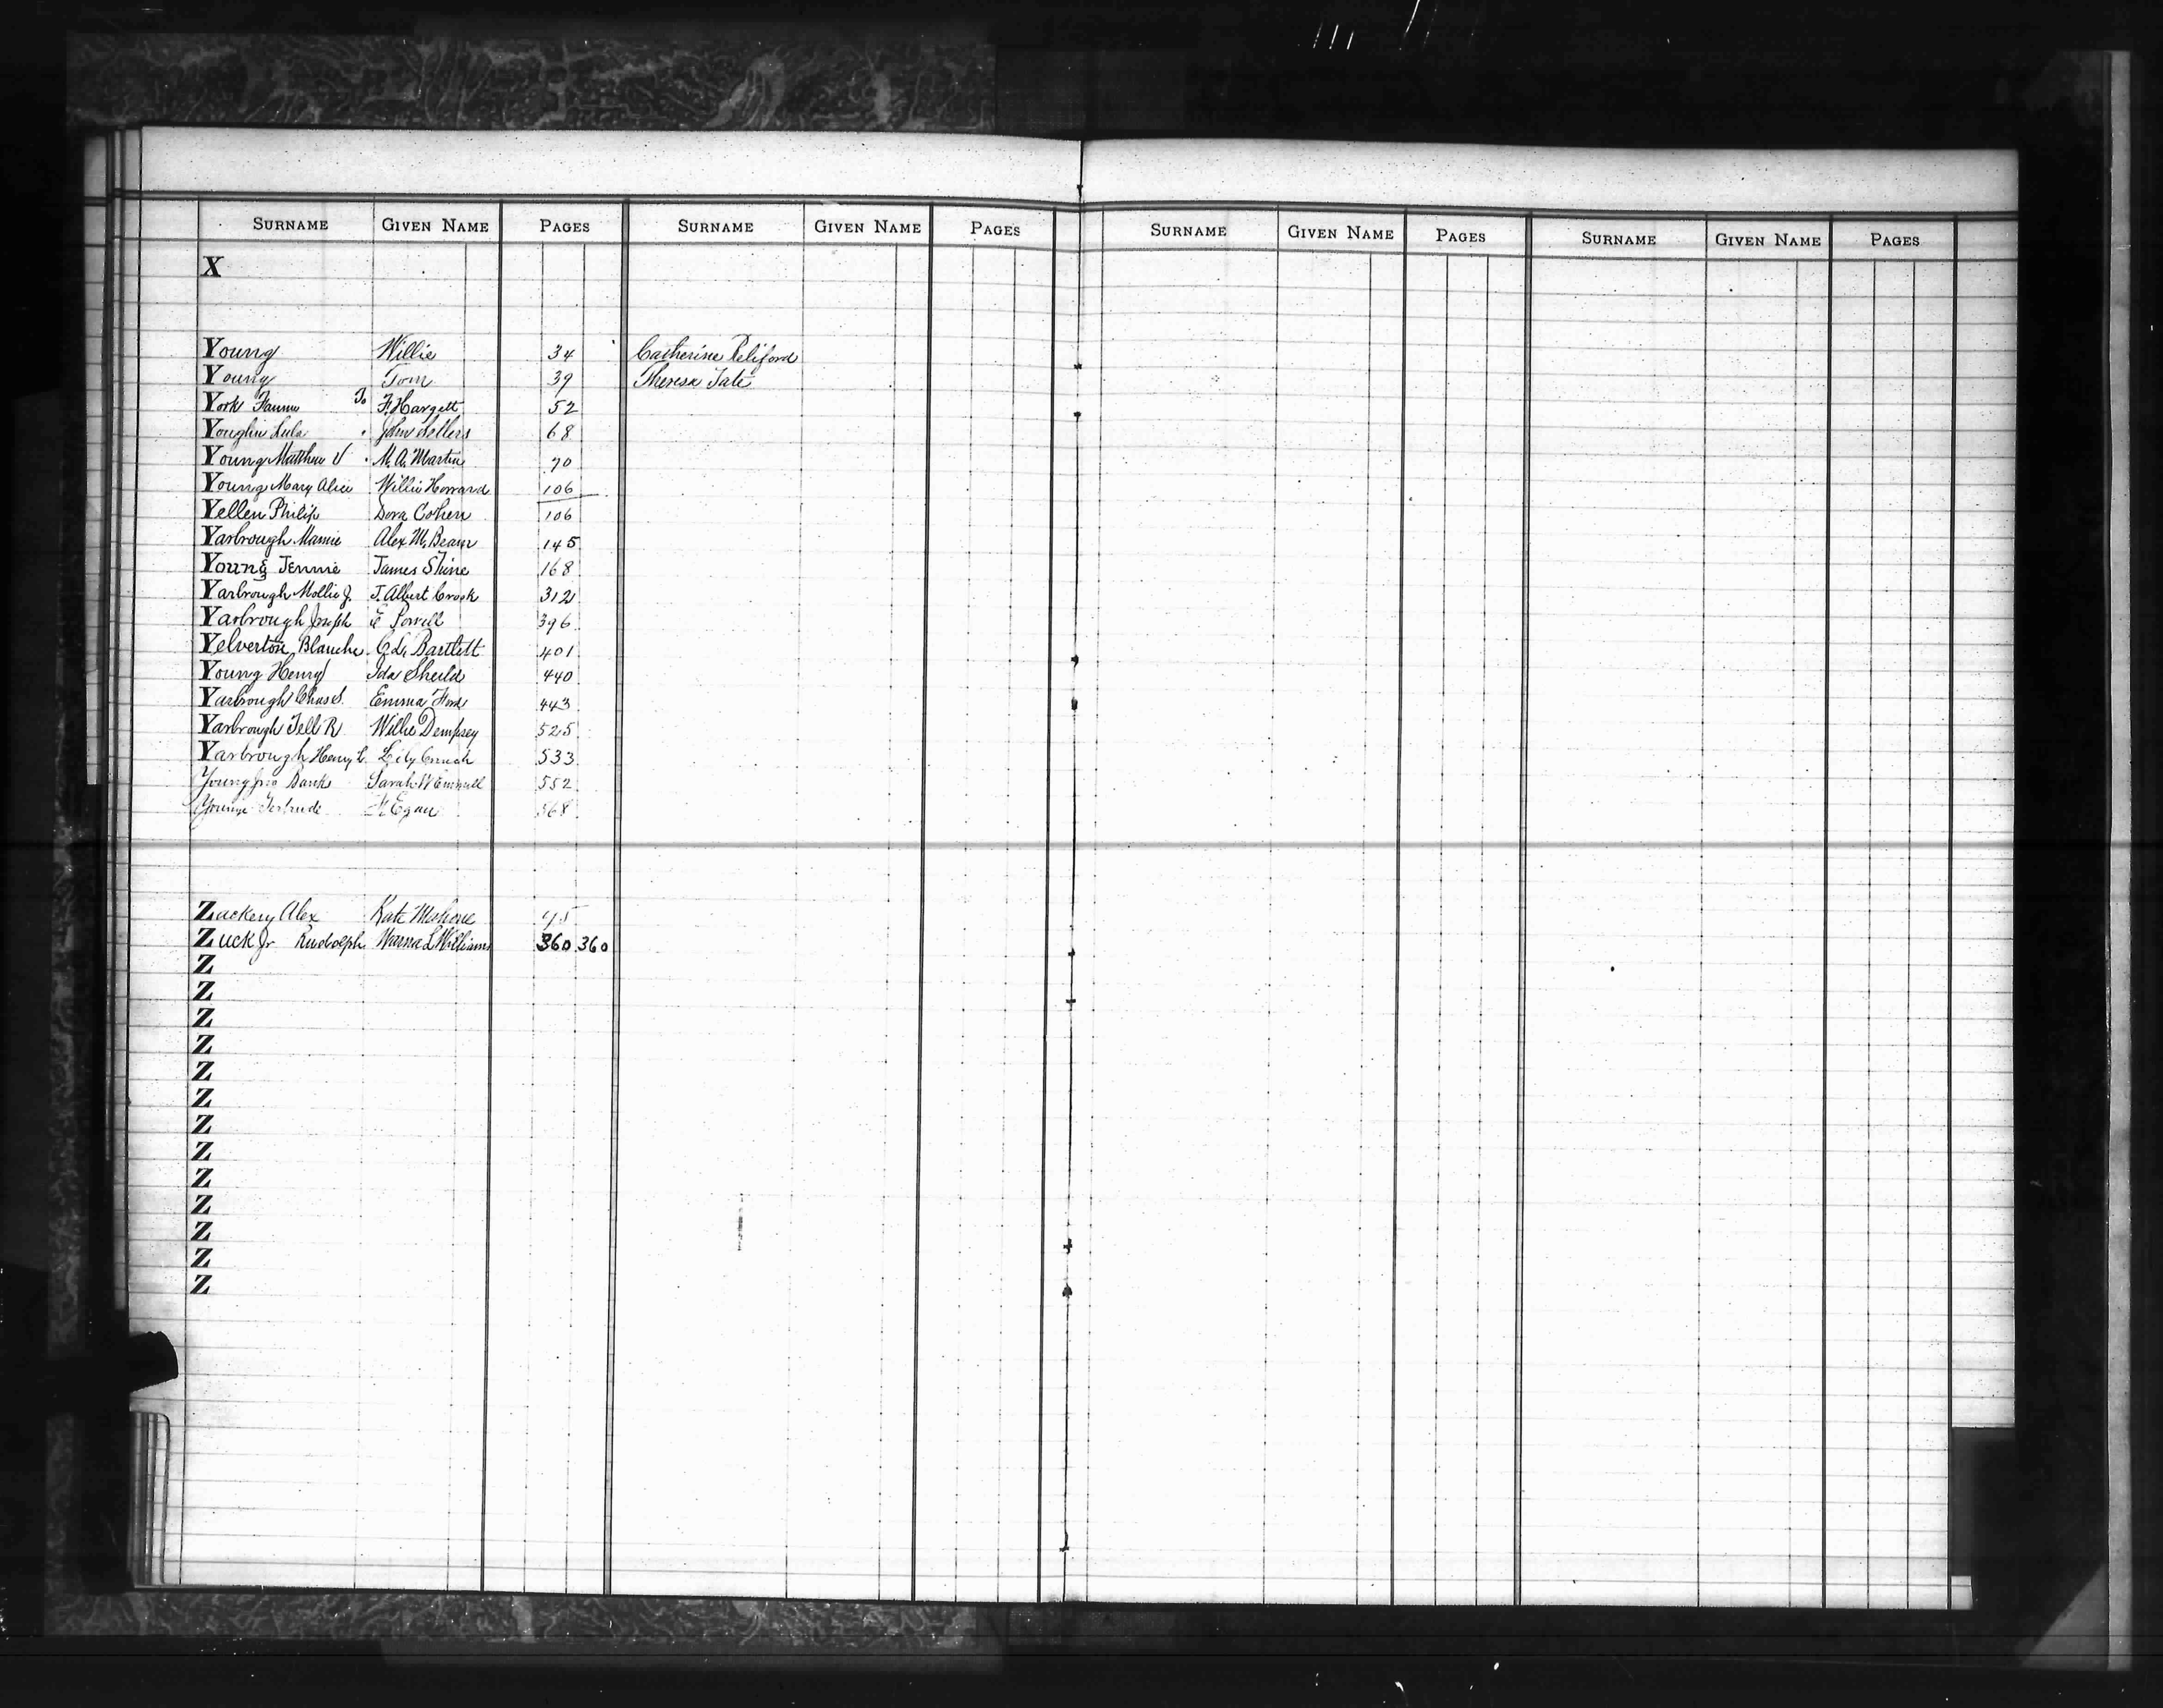 SURNAME GIVEN NAME PAGES SURNAME GIVEN NAME PAGES SURNAME GIVEN NAME PAGES SURNAME GIVEN NAME PAGES
X
Young Willie 34 Catherine Reliford
Young Tom 39 Theresa Tate
York Fannie To F. Hargett 52
Youghn Lula John Sellers 68
Young Matthew V M. A. Martin 70
Young Mary Alice Willie Howard 106
Yellen Philip Dora Cohen 106
Yarbrough Mamie Alex M. Beam 145
Young Jennie James Shine 168
Yarbrough Mollie J. J. Albert Crook 312
Yarbrough Joseph E Powell 396
Yelverton Blanche Bartlett 401
Young Henry Ida Sheild 440
Yarbrough Chas S. Emma Ford 443
Yarbrough Tell R Willie Dempsey 525
Yarbrough Henry L. Lily 533
Young Jno Banks Sarah 552
Young Gertrude Egan 568
Zackery Alex Kate 95
Zuck Jr Rudolph L Williams 360 360
Z
Z
Z
Z
Z
Z
Z
Z
Z
Z
Z
Z
Z